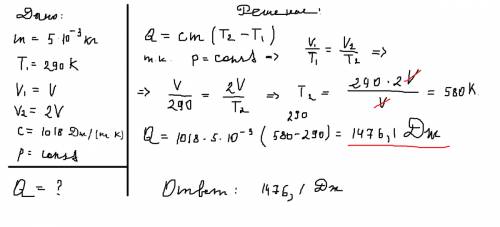 Дано:
m = 5·10⁻³ кг
T₁ = 290 K
V₁ = V
V₂ = 2V
c = 1018 Дж/(кг·K)
p = const
Q = ?
Решение:
Q = cm (T₂ – T₁)
т.к. p = const => V₁/T₁ = V₂/T₂ =>
=> V/290 = 2V/T₂ => T₂ = 290·2V/V = 580K.
290
Q = 1018·5·10⁻³ (580-290) = 1476,1 Дж
Ответ: 1476,1 Дж